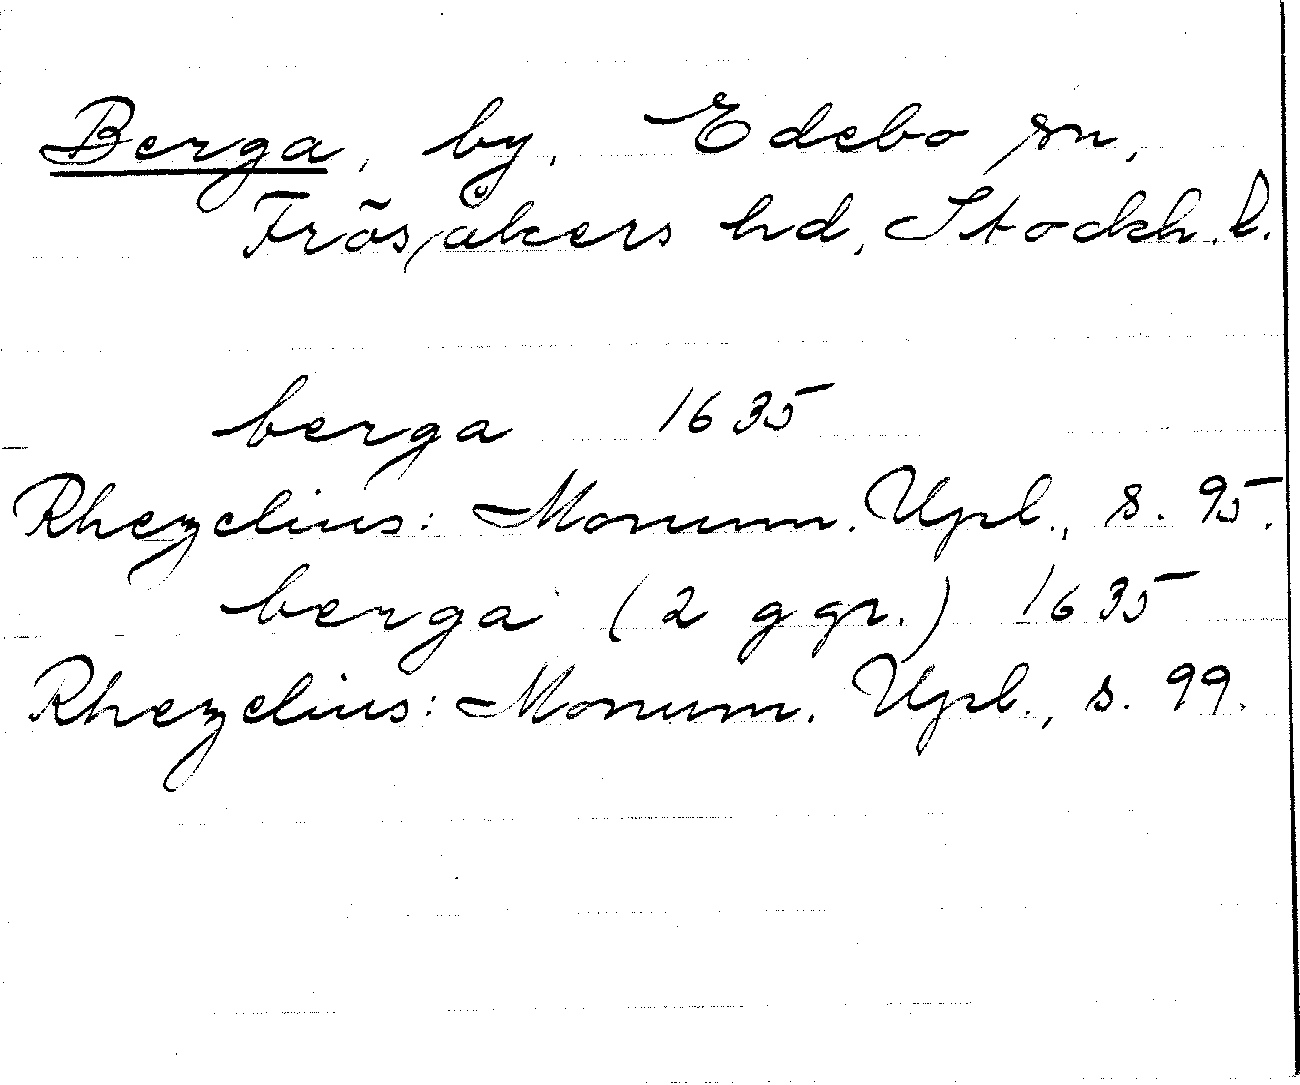 Berga, by, Edebo sn,
Frösåkers hd, Stockh. l.
berga 1635
Rhezelius: Monum. Upl., s. 95.
berga (2 ggr.) 1635
Rhezelius: Monum. Upl., s. 99.